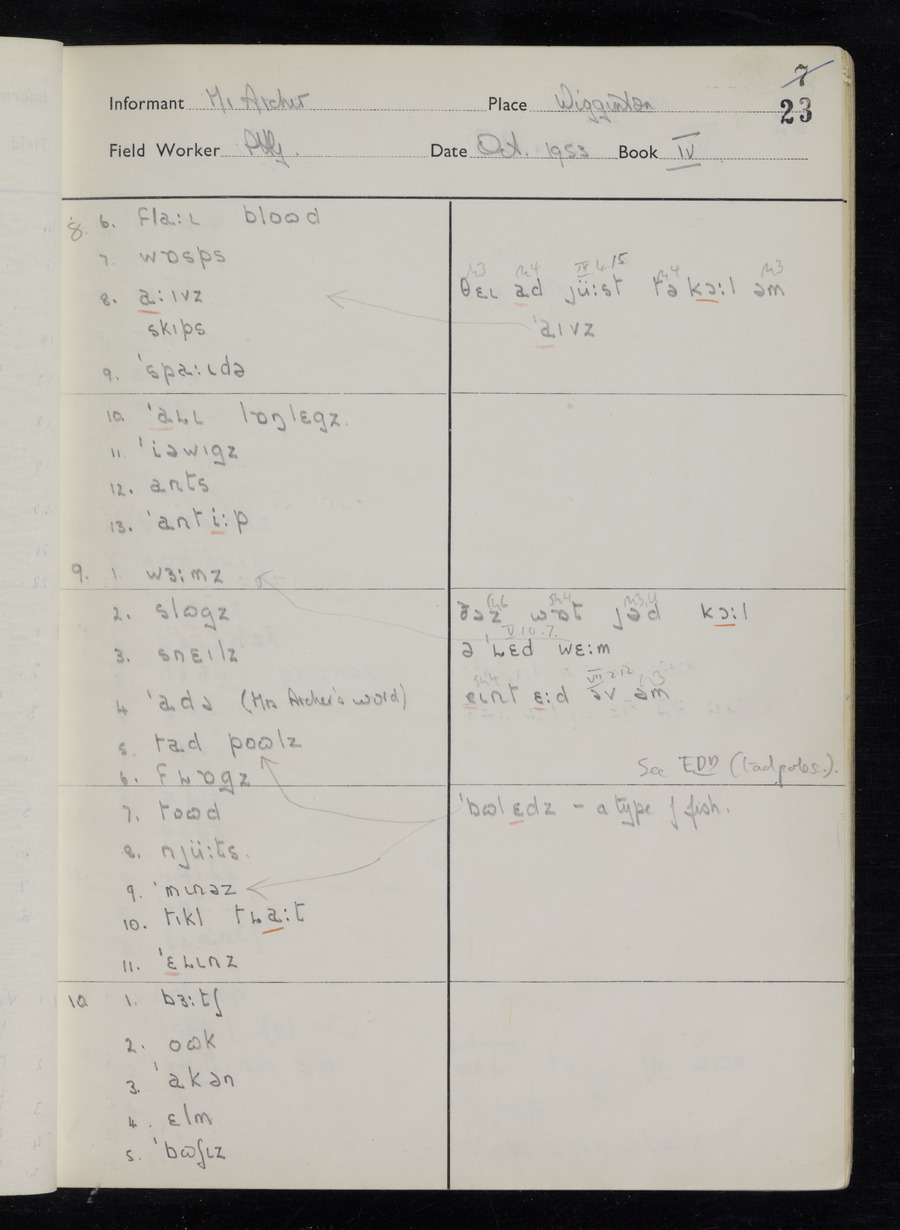 7
Informant Mr Archer Place Wigginton 23
Field Worker Date Oct. 1953 Book IV
8. 6. flaːɩ bloɷd
7. wɒsps
8. aːɪvz
skɪps
9. ˈspaːɩdə
θɛɩ ad jüːst tə kɔːl əm
ˈaɪvz
10. ˈaɹɩ lɒŋlɛgz.
11. ˈiəwɪgz
12. ants
13. ˈantiːp
9. 1. wɜːmz
2. slɷgz
3. snɛɪlz
4. ˈadə (Mrs Archer's word)
5. tad poɷlz
6. fɹɒgz
ðəz wɒt jəd kɔːl
ə ˈɹɛd wɛːm
V 10.7.
ɛɪnt ɛːd əv əm
See EDD (tadpoles.).
7. toɷd
8. njüːts.
9. ˈmɩnəz
10. tɪkl tɹaːt
11. ˈɛɹɩnz
ˈbɷlɛdz – a type of fish.
10 1. bɜːtʃ
2. oɷk
3. ˈakən
4. ɛlm
5. ˈbɷʃɩz